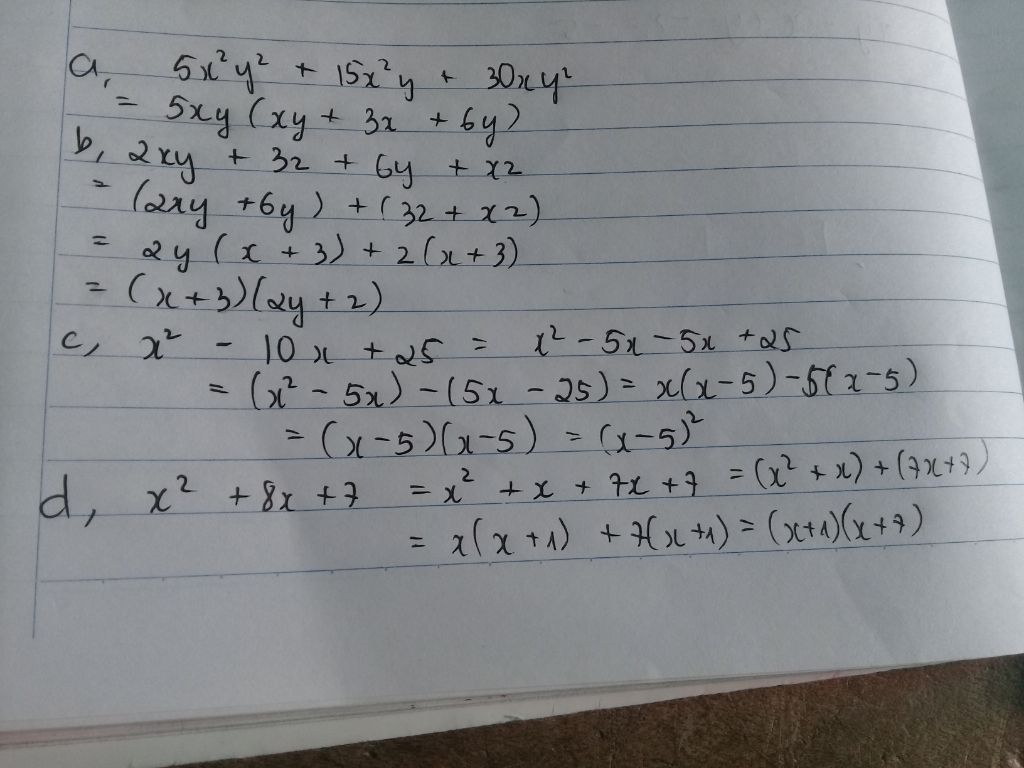 a, 5x²y² + 15x²y + 30xy²
= 5xy (xy + 3x + 6y)
b, 2xy + 3z + 6y + xz
= (2xy + 6y) + (3z + xz)
= 2y (x + 3) + z (x + 3)
= (x + 3)(2y + z)
c, x² - 10x + 25 = x² - 5x - 5x + 25
= (x² - 5x) - (5x - 25) = x(x - 5) - 5(x - 5)
= (x - 5)(x - 5) = (x - 5)²
d, x² + 8x + 7 = x² + x + 7x + 7 = (x² + x) + (7x + 7)
= x(x + 1) + 7(x + 1) = (x + 1)(x + 7)